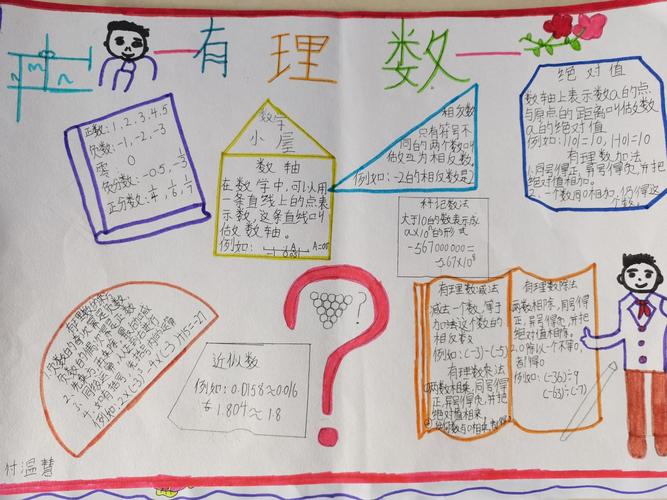 有理数
正数:1,2,3,4,5
负数:-1,-2,-3
零 0
负分数:-0.5,-1/3
正分数:1/4,1/6,1/7
数字
小屋
数轴
在数学中,可以用
一条直线上的点表
示数,这条直线叫
做数轴。
例如:
相反数
只有符号不
同的两个数叫
做互为相反数,
例如:-2的相反数是2
科学记数法
大于10的数表示成
a×10ⁿ的形式
-567000000=
-5.67×10⁸
绝对值
数轴上表示数a的点
与原点的距离叫做数
a的绝对值
例如:|10|=10,|-10|=10
有理数加法
1.同号得正,异号得负,并把
绝对值相加。
2.一个数同0相加,仍得这
个数。
近似数
例如:0.0158≈0.016
1.804≈1.8
?
有理数减法
减去一个数,等于
加法这个数的
相反数
例如:(-3)-(-5)
有理数乘法
两数相乘,同号得
正,异号得负,并把
绝对值相乘
有理数除法
两数相除,同号得
正,异号得负,并把
绝对值相除。
2.0除以一个不等0,
都得0
例如:(-36)÷9
(-63)÷(-7)
付温慧